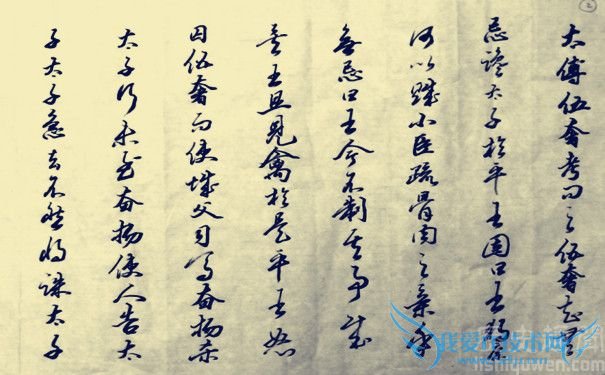 太傅伍奢考問之伍奢知無
忌讒太子於平王因曰王獨奈
何以賊小臣疏骨肉之親乎
無忌曰王今不制其事成
矣王且見禽於是平王怒
囚伍奢而使城父司馬奮揚杀
太子行未至奮揚使人告太
子太子急去不然將誅太子
②
我爱IT技术网
lishiquwen.com